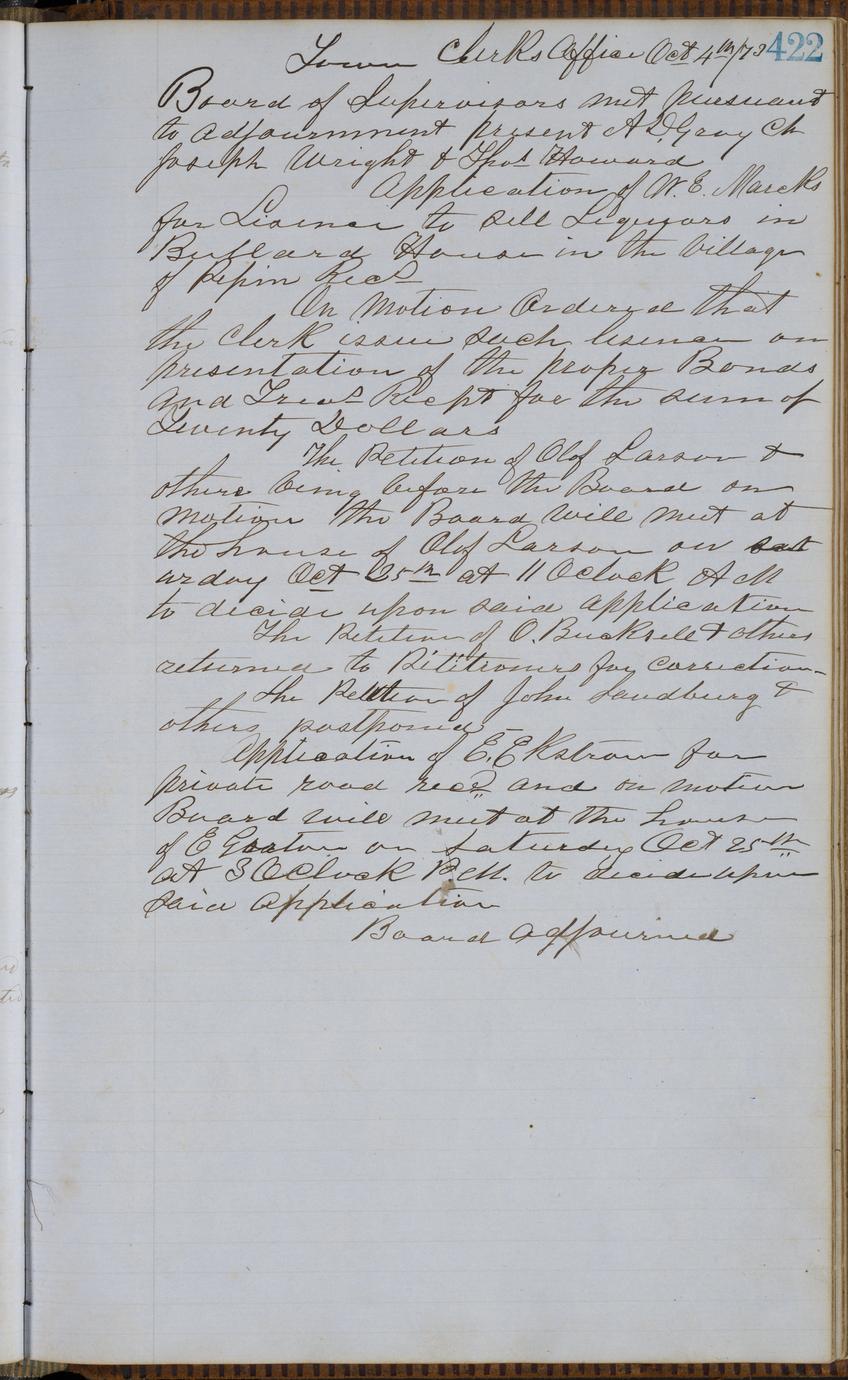 Town Clerks Office Oct 4th/73 422
Board of Supervisors met pursuant
to adjournment present A D Gray Ch
Joseph Wright & Thos Howard
Application of W. E. Marcks
for Lisence to sell Liquors in
Bullard House in the Village
of Pepin Recd
On Motion Ordered that
the Clerk issue such lisence on
presentation of the proper Bonds
and Treas Recpt for the sum of
Twenty Dollars
The Petition of Olof Larson &
others being before the Board on
motion the Board will meet at
the house of Olof Larson on Sat
urday Oct 25th at 11 Oclock A M
to decide upon said application
The Petition of O. Bucksell & others
returned to Petitioners for correction
The Petition of John Sandburg &
others postponed
Application of E. Ekstrom for
private road recd and on motion
Board will meet at the house
of E on Saturday Oct 25th
at 3 OClock P.M. to decide upon
said application
Board adjourned